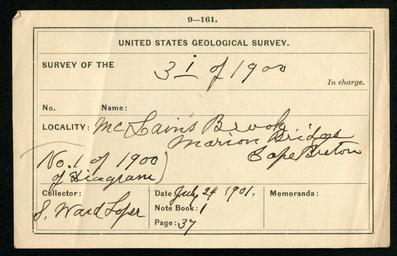 9—161.
UNITED STATES GEOLOGICAL SURVEY.
SURVEY OF THE 3 i of 1900
In charge.
No. Name:
LOCALITY: McLain's Brook
Marion Bridge
Cape Breton
(No. 1 of 1900
of Diagram)
Collector:
S. Ward Loper
Date July 24 1901.
Note Book: 1
Page: 37
Memoranda: